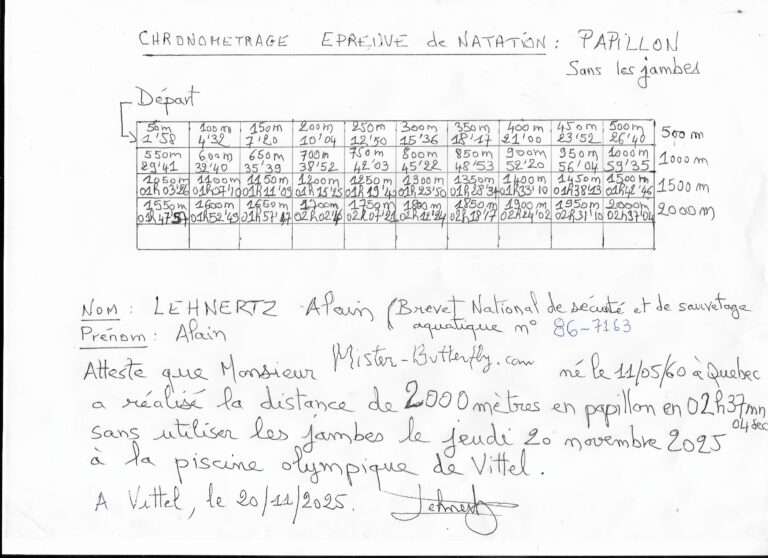 CHRONOMETRAGE EPREUVE de NATATION : PAPILLON
Sans les jambes
Départ
50m 100m 150m 200m 250m 300m 350m 400m 450m 500m
1'58 4'32 7'20 10'04 12'50 15'36 18'17 21'00 23'52 26'40
500m
550m 600m 650m 700m 750m 800m 850m 900m 950m 1000m
29'41 32'40 35'39 38'52 42'03 45'22 48'53 52'20 56'04 59'35
1000m
1050m 1100m 1150m 1200m 1250m 1300m 1350m 1400m 1450m 1500m
01h03'26 01h07'10 01h11'09 01h15'15 01h19'45 01h23'50 01h28'34 01h33'10 01h38'13 01h42'46
1500m
1550m 1600m 1650m 1700m 1750m 1800m 1850m 1900m 1950m 2000m
01h47'57 01h52'49 01h57'47 02h07'21 02h12'24 02h18'17 02h24'02 02h31'10 02h37'04
2000m
Nom : LEHNERTZ Alain (Brevet National de sécurité et de sauvetage
Prénom : Alain aquatique n° 86-7163
Atteste que Monsieur Mister-Butterfly.com né le 11/05/60 à Quebec
a réalisé la distance de 2000 mètres en papillon en 02h37mn
04sec
sans utiliser les jambes le jeudi 20 novembre 2025
à la piscine olympique de Vittel.
A Vittel, le 20/11/2025. Lehnertz